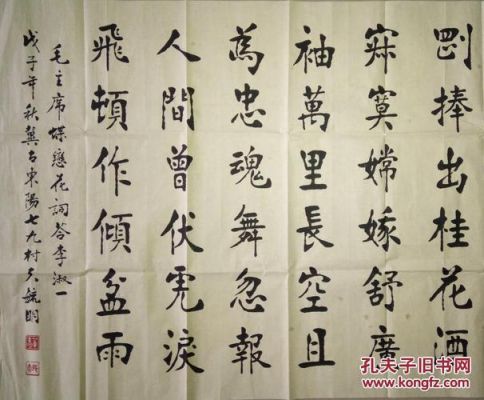 剛捧出桂花酒
寂寞嫦娥舒廣
袖萬里長空且
為忠魂舞忽報
人間曾伏虎淚
飛頓作傾盆雨
毛主席蝶戀花詞答李淑一
戊子年秋冀古東陽七九村夫毓明
孔夫子旧书网
kongfz.com